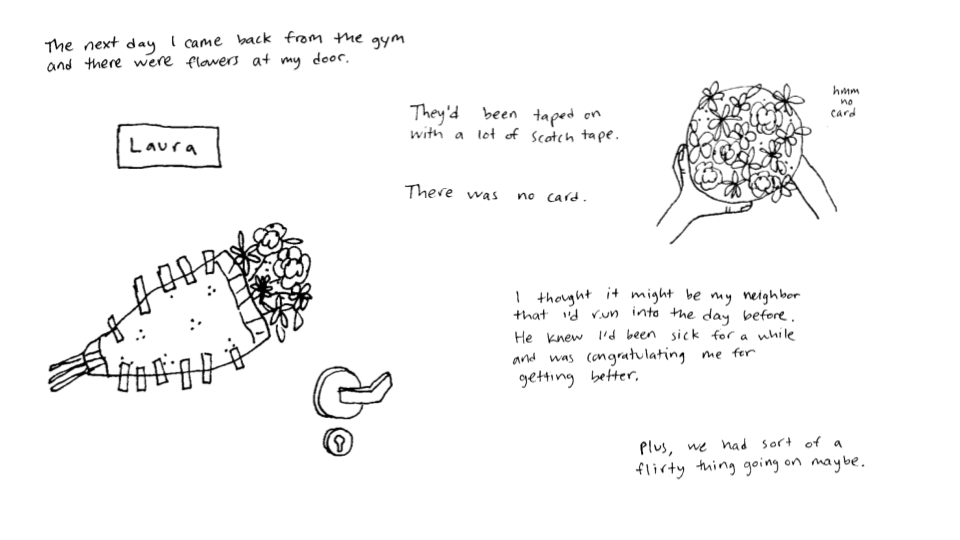 The next day I came back from the gym
and there were flowers at my door.
Laura
They'd been taped on
with a lot of scotch tape.
There was no card.
hmm
no
card
I thought it might be my neighbor
that I'd run into the day before.
He knew I'd been sick for a while
and was congratulating me for
getting better.
Plus, we had sort of a
flirty thing going on maybe.